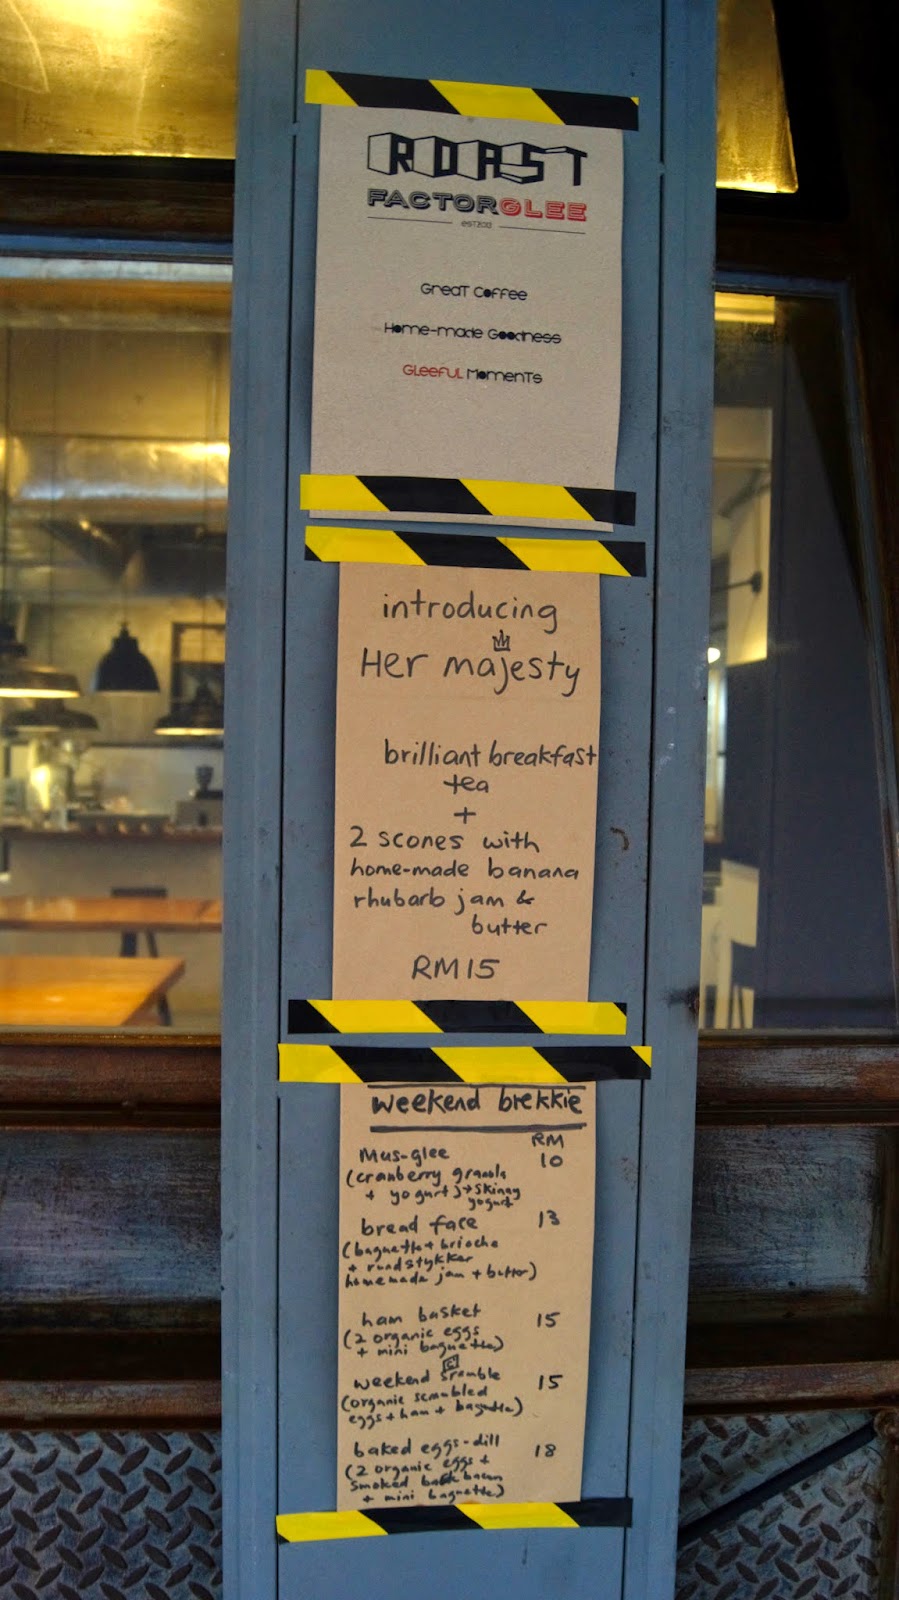 ROAST
FACTORGLEE
EST.2012
Great Coffee
Home-made Goodness
Gleeful Moments
introducing
Her majesty
brilliant breakfast
tea
+
2 scones with
home-made banana
rhubarb jam &
butter
RM15
weekend brekkie
RM
Mus-glee 10
(cranberry granola
+ yogurt) + skinny
yogurt
bread face 13
(baguette + brioche
+ rundstykker
homemade jam + butter)
ham basket 15
(2 organic eggs
+ mini baguette)
c
weekend sramble 15
(organic scrambled
eggs + ham + baguette)
baked eggs-dill 18
(2 organic eggs +
smoked back bacon
+ mini baguette)